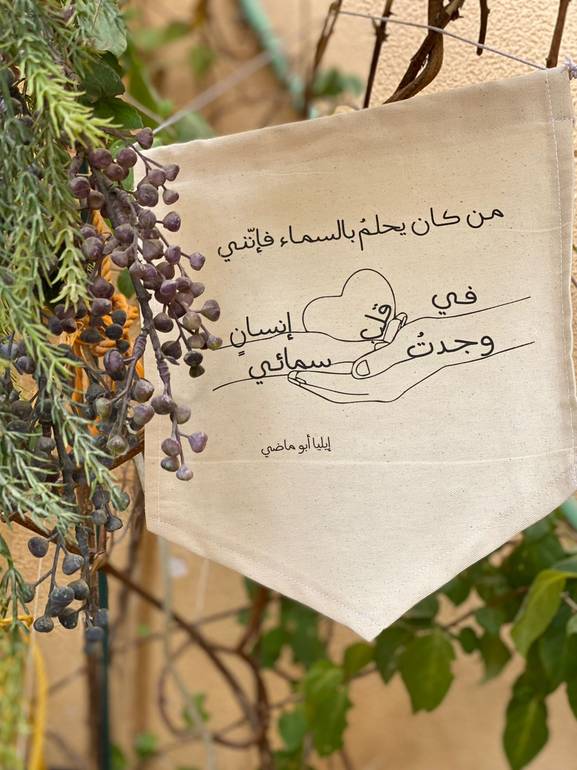 من كان يحلمُ بالسماء فإنّني
في قلب إنسانٍ
وجدتُ سمائي
إيليا أبو ماضي